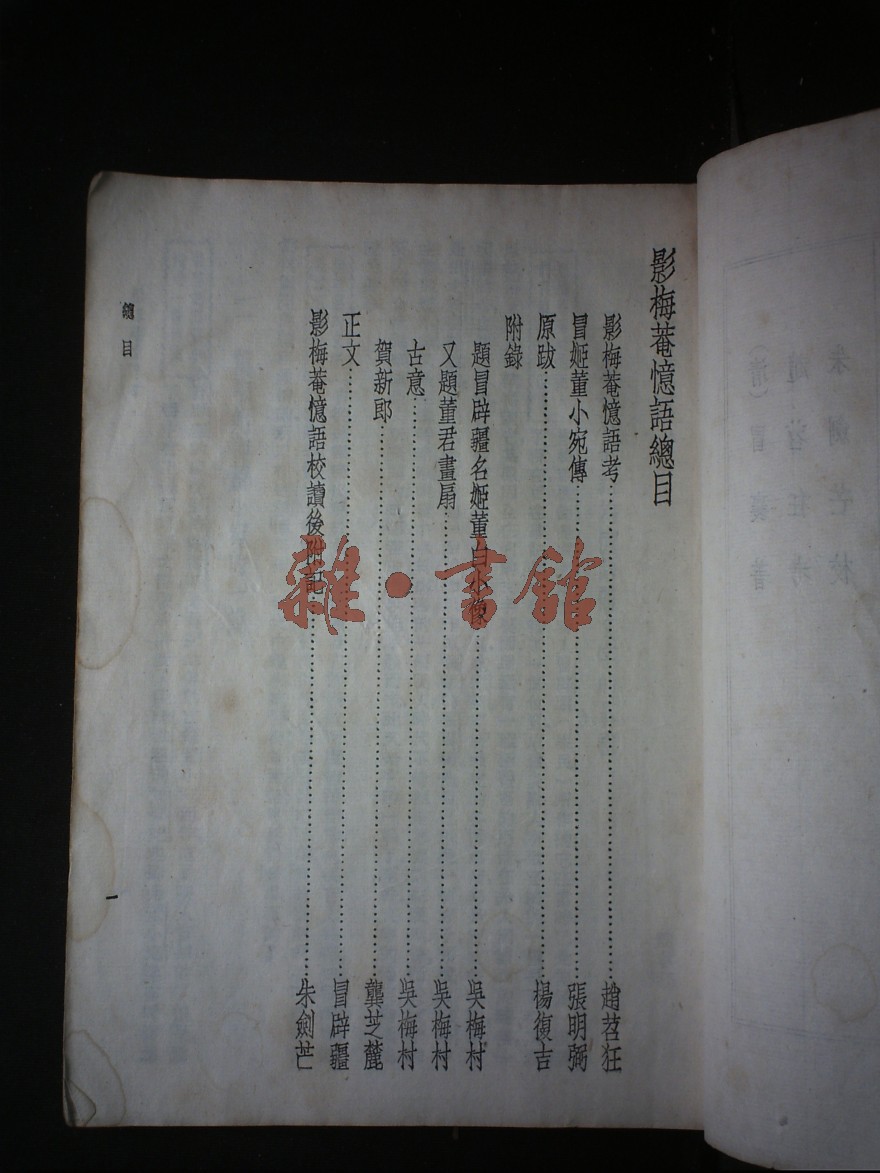 影梅菴憶語總目
影梅菴憶語考……趙苕狂
冒姬董小宛傳……張明弼
原跋……楊復吉
附錄
題冒辟疆名姬董白小像……吳梅村
又題董君畫扇……吳梅村
古意……吳梅村
賀新郎……龔芝麓
正文……冒辟疆
影梅菴憶語校讀後附記……朱劍芒
總目
一
雜·書館